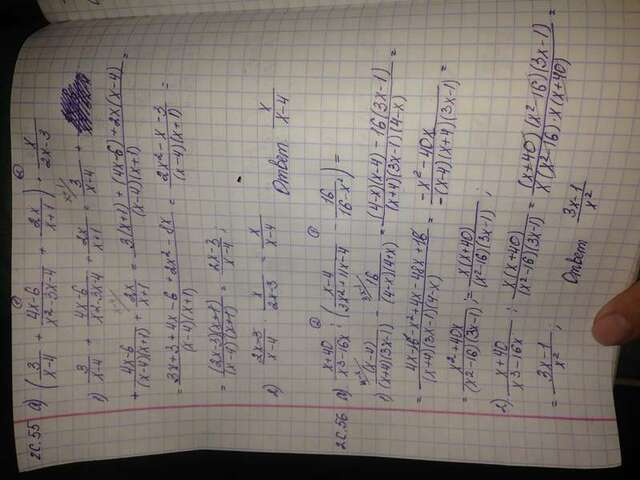 2С.55 а) (3/(x-4) + (4x-6)/(x²-3x-4) + 2x/(x+1)) · x/(2x-3)
1) 3/(x-4) + (4x-6)/(x²-3x-4) + 2x/(x+1) = 3/(x-4) +
+ (4x-6)/((x-4)(x+1)) + 2x/(x+1) = (3(x+1) + (4x-6) + 2x(x-4))/((x-4)(x+1)) =
= (3x+3+4x-6+2x²-8x)/((x-4)(x+1)) = (2x²-x-3)/((x-4)(x+1)) =
= ((2x-3)(x+1))/((x-4)(x+1)) = (2x-3)/(x-4);
2) (2x-3)/(x-4) · x/(2x-3) = x/(x-4) Ответ x/(x-4)
2С.56 а) (x+40)/(x³-16x) : ((x-4)/(3x²+11x-4) - 16/(16-x²)) =
1) (x-4)/((x+4)(3x-1)) - 16/((4-x)(4+x)) = ((4-x)(x-4) - 16(3x-1))/((x+4)(3x-1)(4-x)) =
= (4x-16-x²+4x-48x+16)/((x+4)(3x-1)(4-x)) = (-x²-40x)/(-(x-4)(x+4)(3x-1)) =
= (x²+40x)/((x²-16)(3x-1)) = x(x+40)/((x²-16)(3x-1));
2) (x+40)/(x³-16x) : x(x+40)/((x²-16)(3x-1)) = ((x+40)(x²-16)(3x-1))/(x(x²-16)·x(x+40)) =
= (3x-1)/x²; Ответ (3x-1)/x²